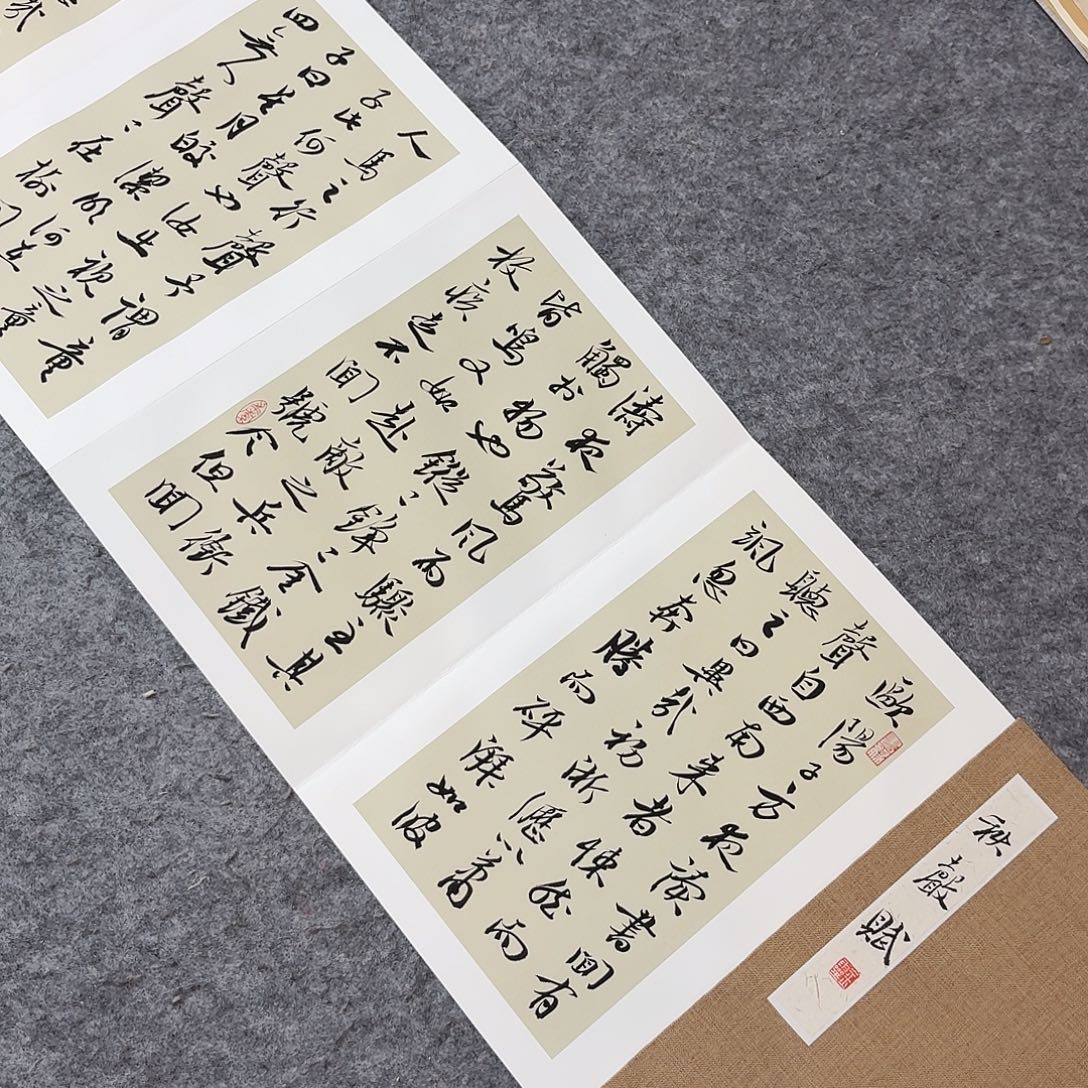 秋聲賦
歐陽子方夜讀書聞有
聲自西南来者悚然而
聽之曰異哉初淅瀝以蕭
颯忽奔騰而砰湃如波
濤夜驚風雨驟至其
觸於物也鏦々錚々金鐵
皆鳴又如赴敵之兵銜
枚疾走不聞號令但聞
人馬之行聲予謂童
子此何聲也汝出視之童
子曰星月皎潔明河在
四無人聲々在樹間